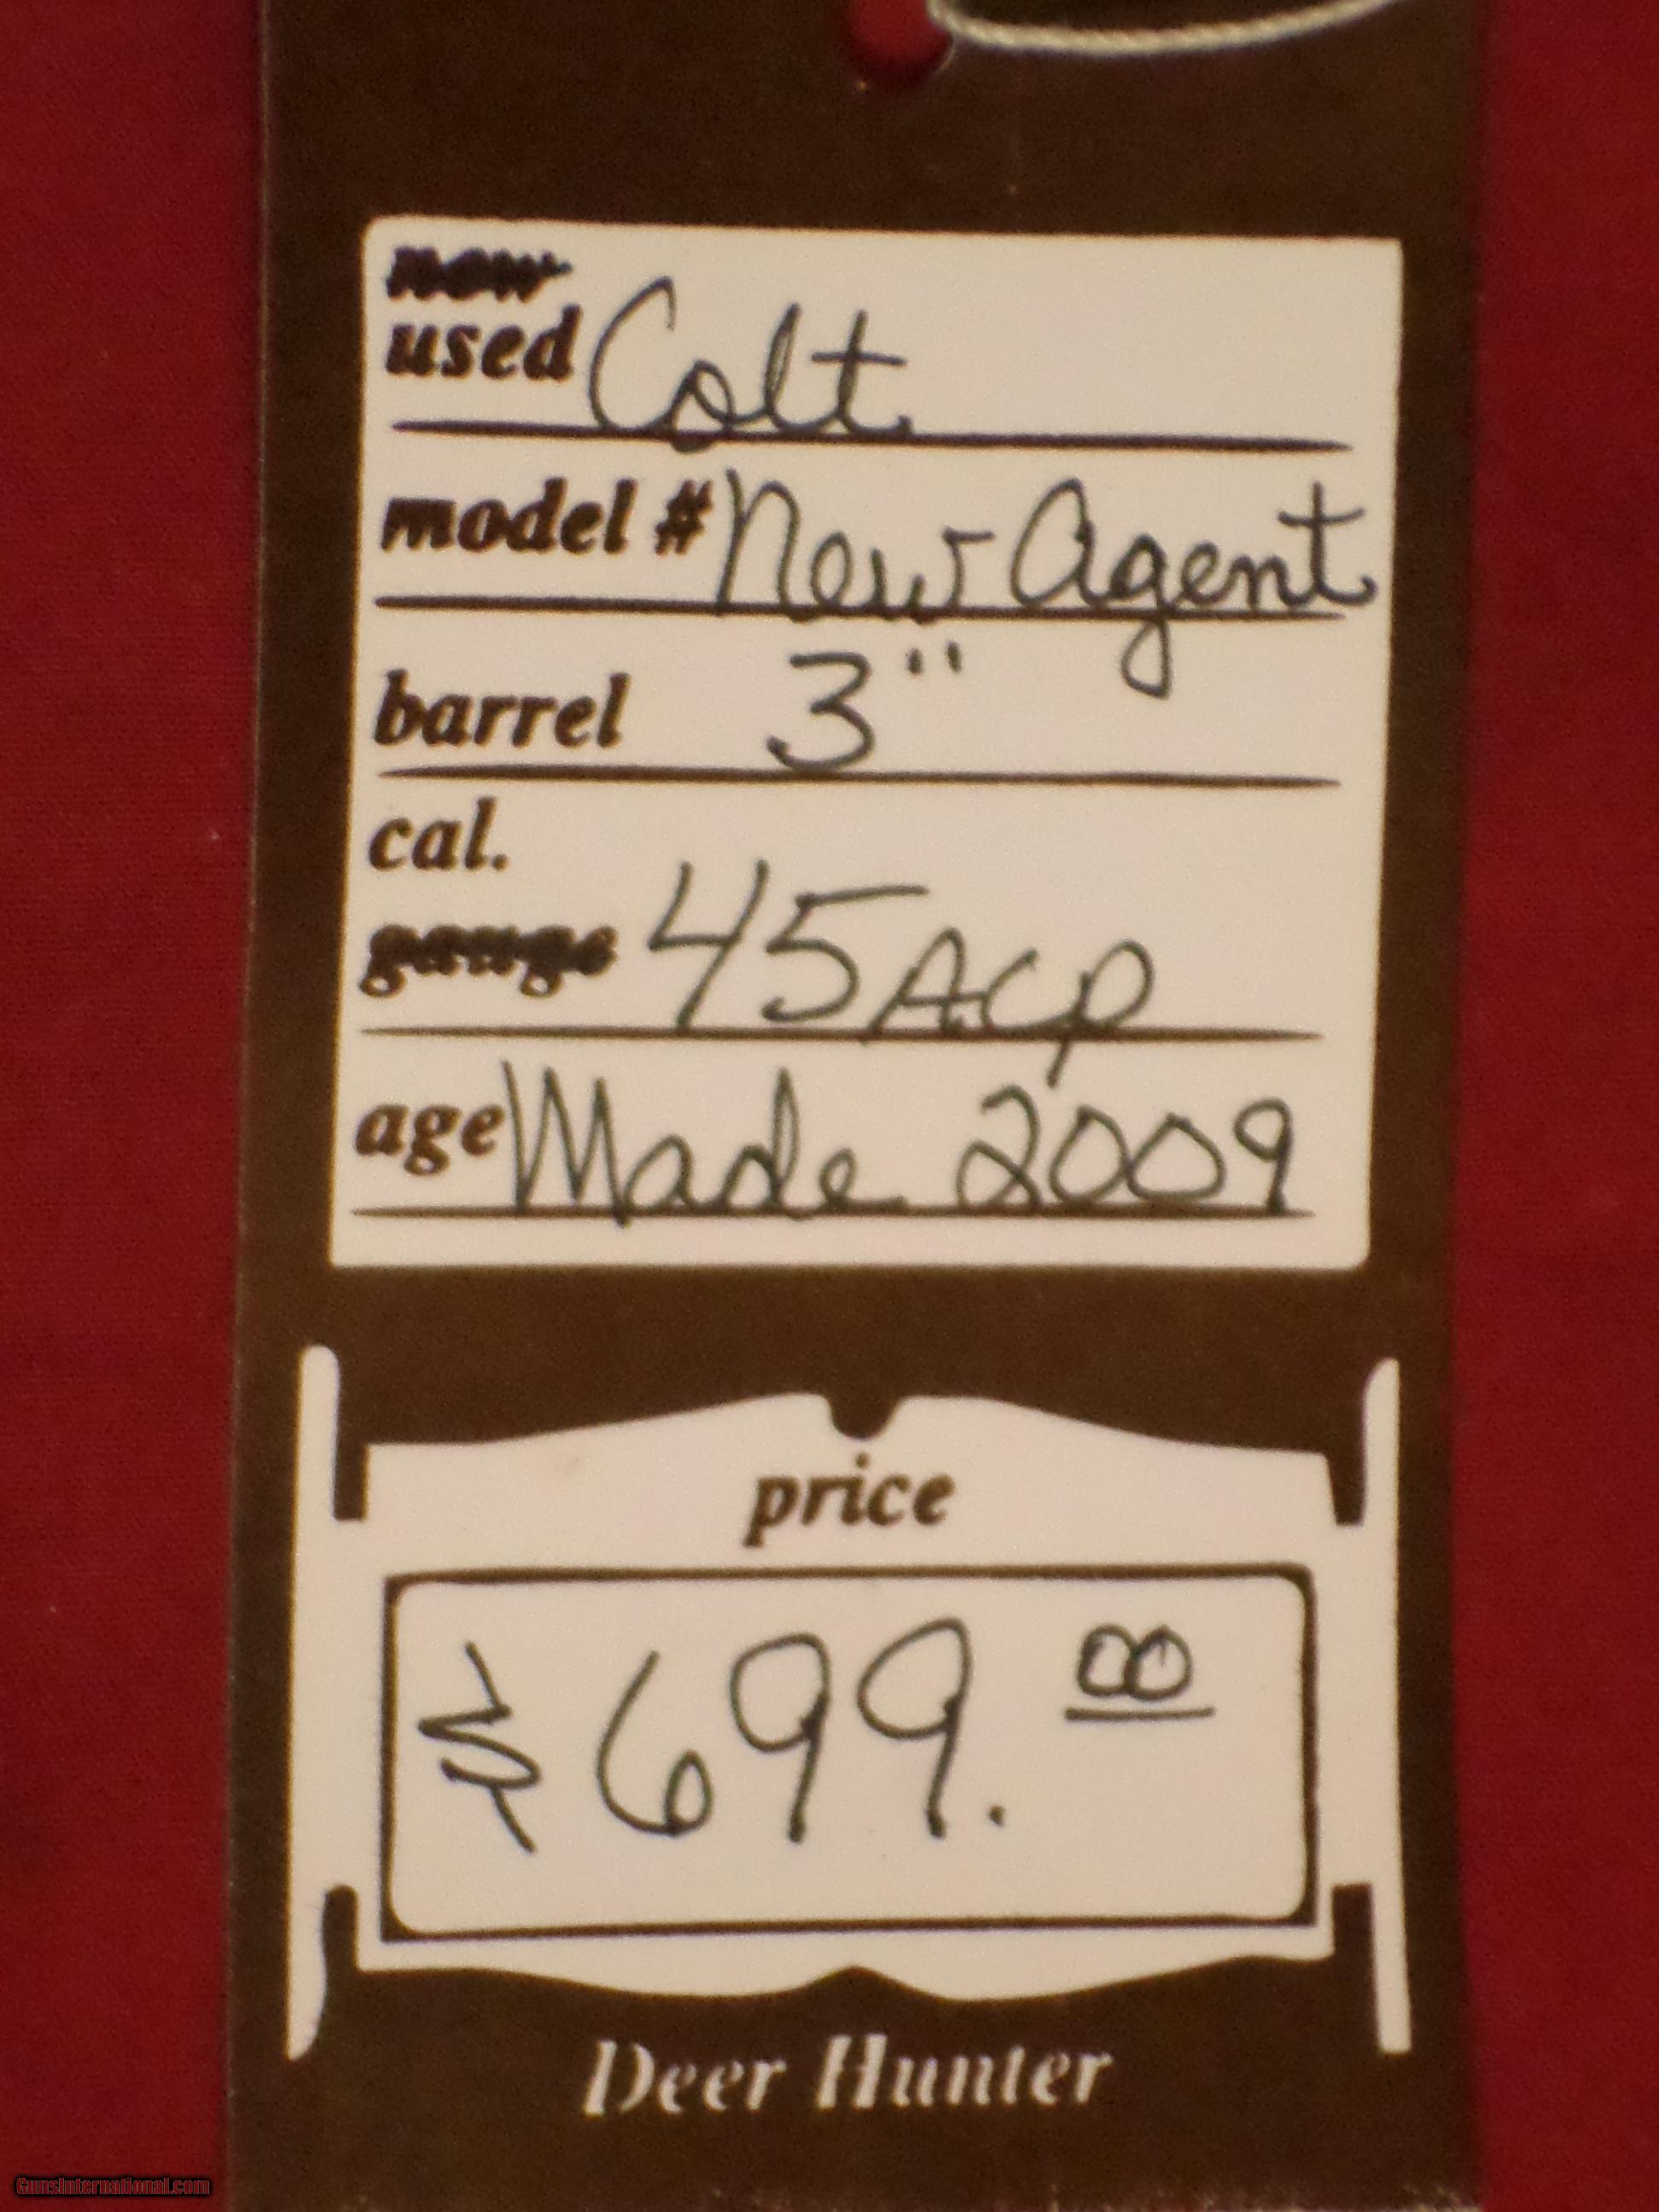 new
used Colt
model # New Agent
barrel 3"
cal.
gauge 45 ACP
age Made 2009
price
$699.00
Deer Hunter
GunsInternational.com